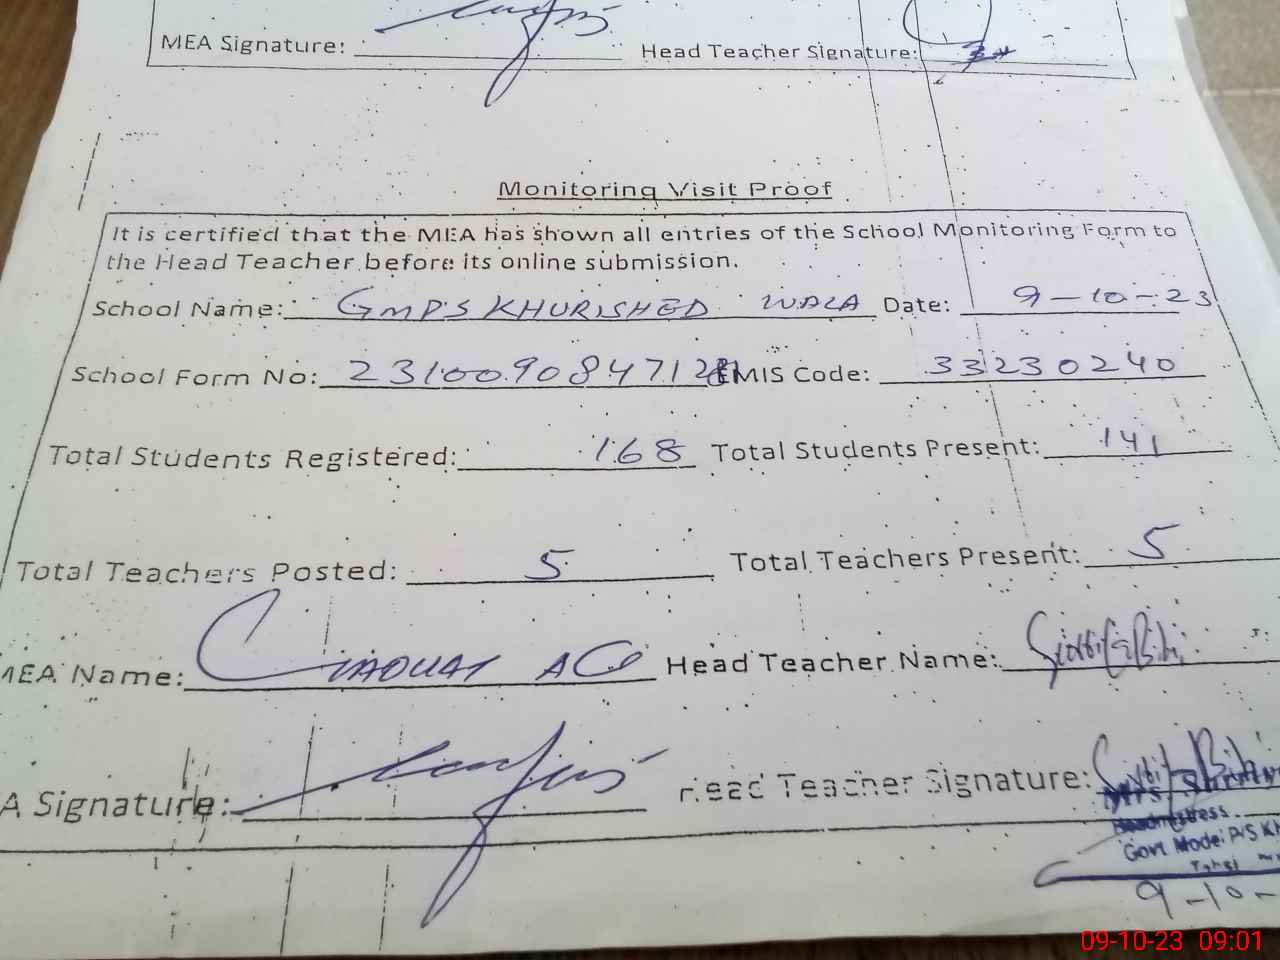 MEA Signature: Head Teacher Signature:
Monitoring Visit Proof
It is certified that the MEA has shown all entries of the School Monitoring Form to
the Head Teacher before its online submission.
School Name: GMPS KHURISHED WALA Date: 9-10-23
School Form No: 2310090847128 EMIS Code: 33230240
Total Students Registered: 168 Total Students Present: 141
Total Teachers Posted: 5 Total Teachers Present: 5
MEA Name: Head Teacher Name: Bibi
A Signature: Head Teacher Signature:
Headmistress
Govt. Model P/S Kh
9-10-
09-10-23 09:01